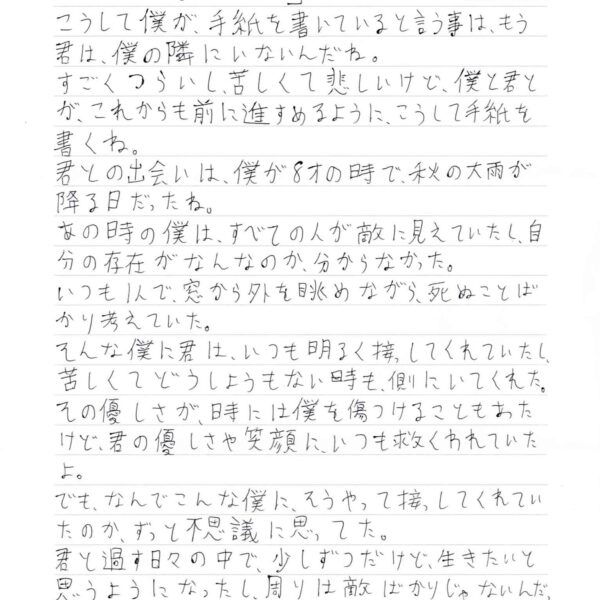 こうして僕が、手紙を書いていると言う事は、もう
君は、僕の隣にいないんだね。
すごくつらいし、苦しくて悲しいけど、僕と君と
が、これからも前に進すめるように、こうして手紙を
書くね。
君との出会いは、僕が8才の時で、秋の大雨が
降る日だったね。
あの時の僕は、すべての人が敵に見えていたし、自
分の存在がなんなのか、分からなかった。
いつも1人で、窓から外を眺めながら、死ぬことば
かり考えていた。
そんな僕に君は、いつも明るく接っしてくれていたし、
苦しくてどうしようもない時も、側にいてくれた。
その優しさが、時には僕を傷つけることもあった
けど、君の優しさや笑顔に、いつも救くわれていた
よ。
でも、なんでこんな僕に、そうやって接っしてくれてい
たのか、ずっと不思議に思ってた。
君と過す日々の中で、少しずつだけど、生きたいと
思うようになったし、周りは敵ばかりじゃないんだ、